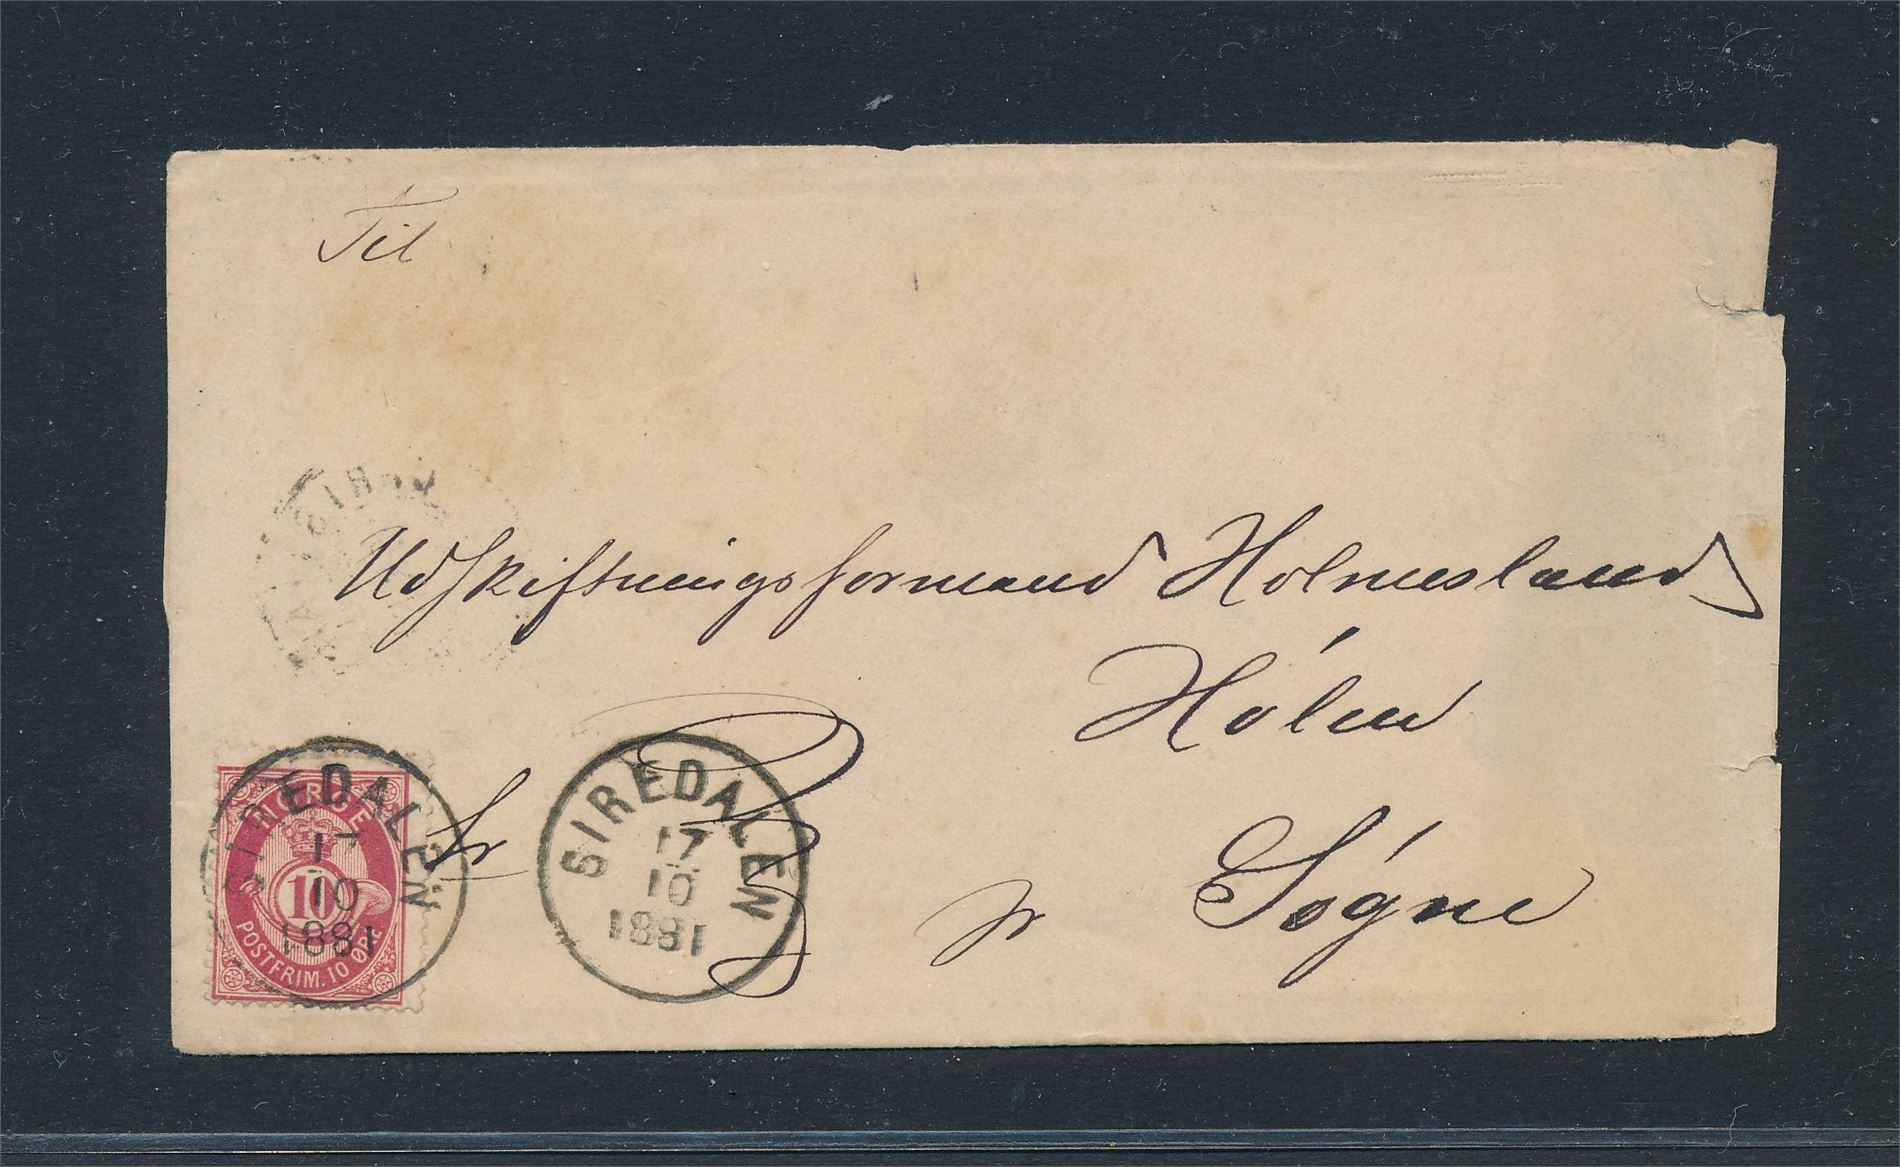 Til
Udskiftningsformand Holmesland
Hólen
pr Sógne
Fr
NORGE
10
POSTFRIM. 10 ØRE
SIREDALEN
17
10
1881
SIREDALEN
17
10
1881